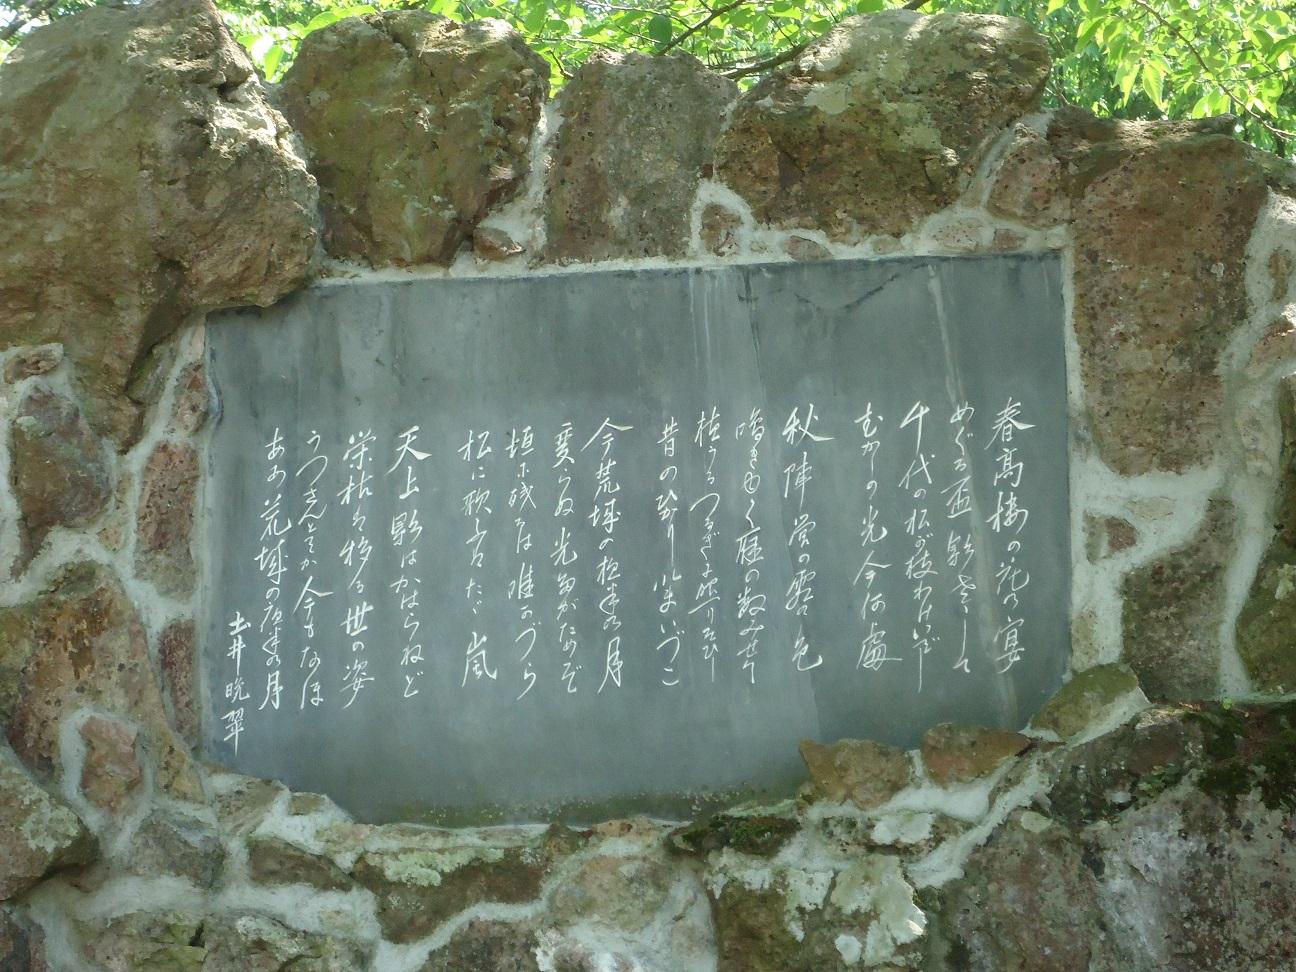 春高楼の花の宴
めぐる盃影さして
千代の松が枝わけいでし
むかしの光今何處
秋陣営の霜の色
鳴きゆく雁の数みせて
植うるつるぎに照りそひし
昔の光今いづこ
今荒城の夜半の月
変らぬ光誰がためぞ
垣に残るは唯かづら
松に歌ふはたゞ嵐
天上影はかはらねど
栄枯は移る世の姿
うつさんとてか今もなほ
ああ荒城の夜半の月
土井晩翠